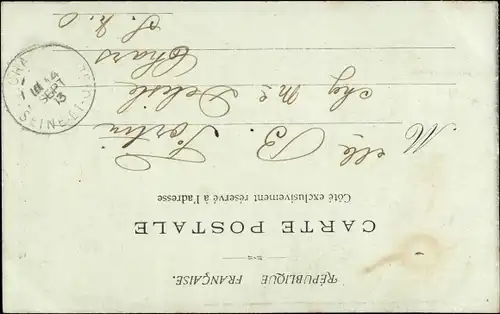 RÉPUBLIQUE FRANÇAISE.
CARTE POSTALE
Côté exclusivement réservé à l'adresse
Melle B. Fortin
chez Me Delisle
Chars
S. & O
SEINE-ET-OISE
14
SEPT